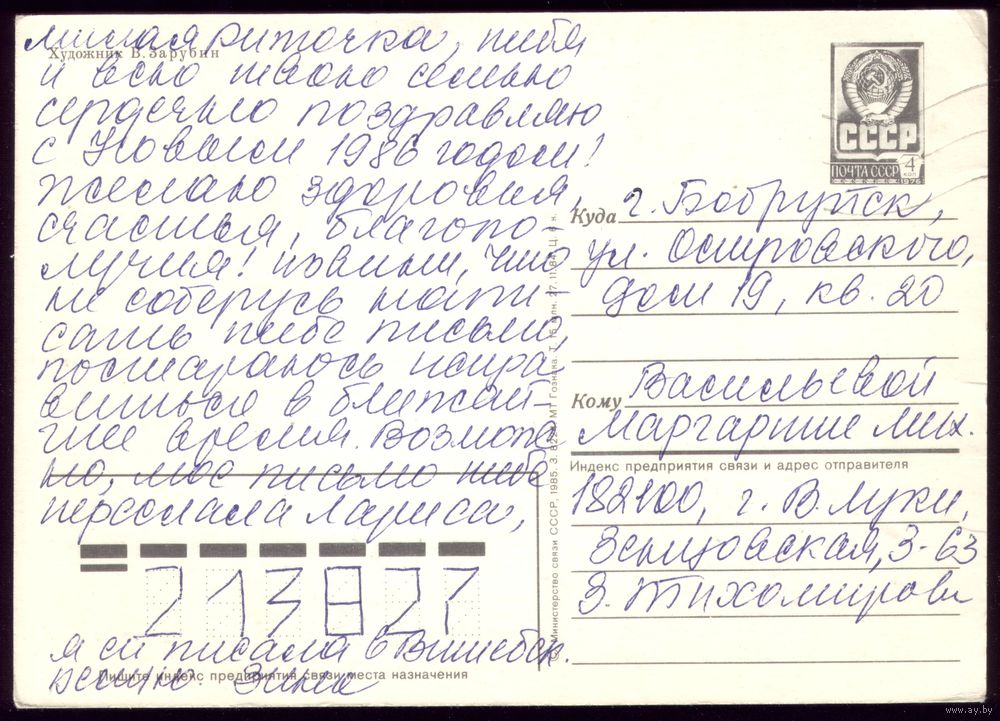 Художник В. Зарубин
милая Риточка, тебя
и всю твою семью
сердечно поздравляю
с Новым 1986 годом!
Желаю здоровья,
счастья, благопо-
лучия!
что
не соберусь напи-
сать тебе письмо,
постараюсь испра-
виться в ближай-
шее время. Возмож-
но, мое письмо тебе
переслала Лариса,
213827
я ей писала в Витебск.
Зина
Пишите индекс предприятия связи места назначения
© Министерство связи СССР, 1985. З. 8229. МТ Гознака. Т. 15 млн. 27.11.84. Ц. 5 к.
СССР
ПОЧТА СССР 4 коп
1976
Куда г. Бобруйск,
ул. Островского,
дом 19, кв. 20
Кому Васильевой
Маргарите Мих.
Индекс предприятия связи и адрес отправителя
182100, г. В. Луки,
3-63
З. Тихомирова
www.ay.by